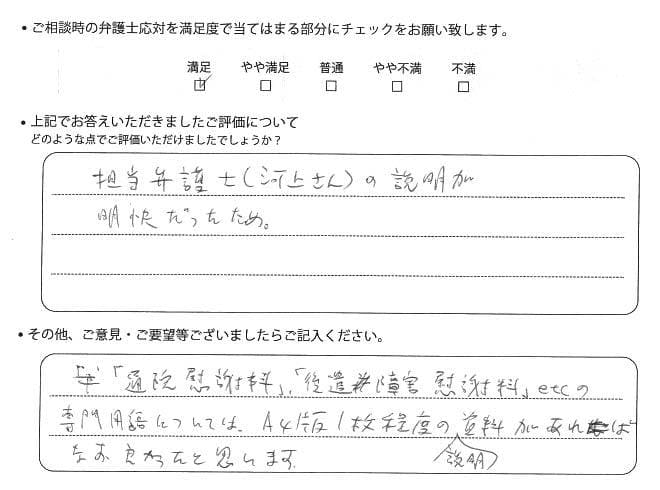 • ご相談時の弁護士応対を満足度で当てはまる部分にチェックをお願い致します。
満足 やや満足 普通 やや不満 不満
• 上記でお答えいただきましたご評価について
どのような点でご評価いただけましたでしょうか?
担当弁護士(河上さん)の説明が
明快だったため。
• その他、ご意見・ご要望等ございましたらご記入ください。
「通院慰謝料」、「後遺障害慰謝料」etcの
専門用語については、A4版1枚程度の説明資料があれば
なお良かったと思います。